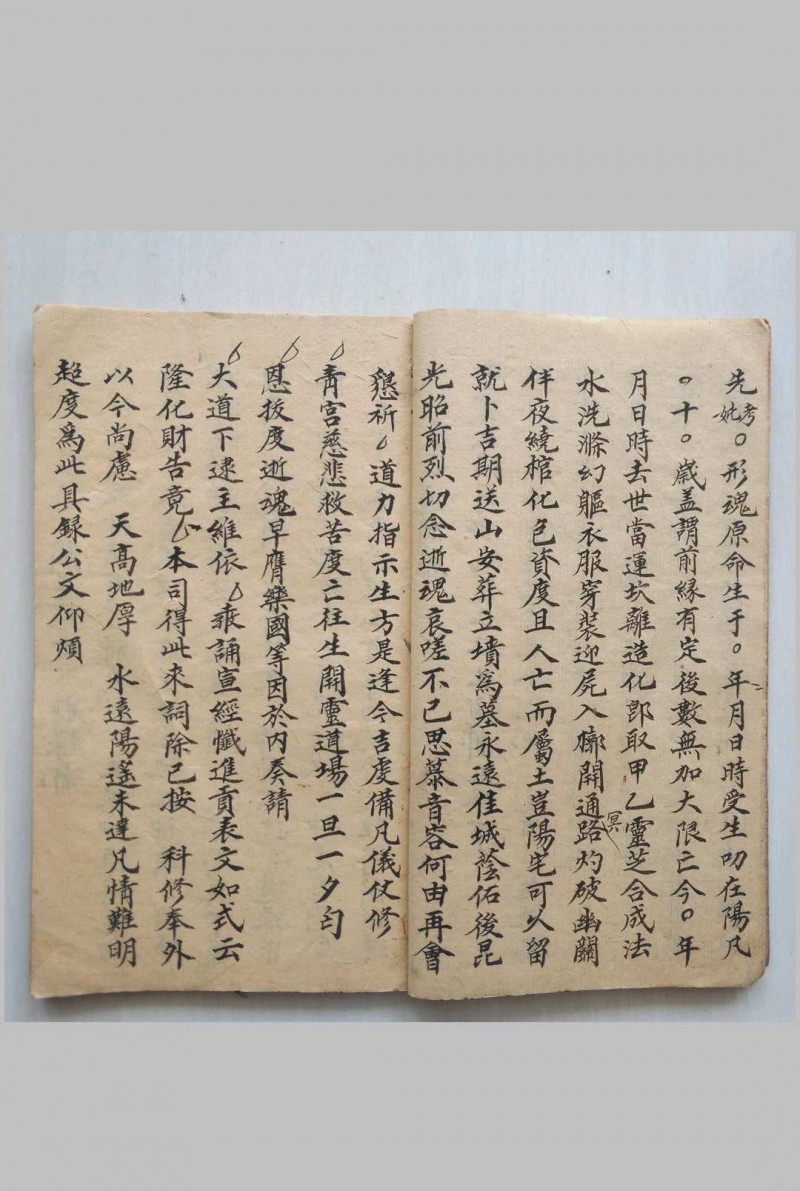 先考妣○形魂原命生于○年月日時受生叨在陽凡
○十○歲盖謂前緣有定後數無加大限亡今○年
月日時去世當運坎離造化即取甲乙靈芝合成法
水洗滌幻軀衣服穿裝迎屍入槨開通冥路灼破幽關
伴夜繞棺化色資度且人亡而屬土豈陽宅可以留
就卜吉期送山安葬立墳爲墓永遠佳城蔭佑後昆
光昭前烈切念逝魂哀嗟不已思慕音容何由再會
懇祈道力指示生方是逢今吉虔備凡儀仗修
青宮慈悲救苦度亡往生開靈道場一旦一夕匄
恩拔度逝魂早膺樂國等因於内奏請
大道下逮主維依乘誦宣經懺進貢表文如式云
隆化財告竟本司得此來詞除已按 科修奉外
以今尚慮 天高地厚 水遠陽遙未達凡情難明
超度爲此具録公文仰煩